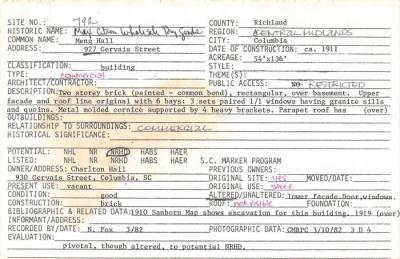 SITE NO.: 792 COUNTY: Richland
HISTORIC NAME: Max Citron Wholesale Dry Goods REGION: CENTRAL MIDLANDS
COMMON NAME: Meng Hall CITY: Columbia
ADDRESS: 927 Gervais Street DATE OF CONSTRUCTION: ca. 1911
ACREAGE: 54'x136'
CLASSIFICATION: building STYLE:
TYPE: commercial THEME(S):
ARCHITECT/CONTRACTOR: PUBLIC ACCESS: NO RESTRICTED
DESCRIPTION: Two storey brick (painted - common bond), rectangular, over basement. Upper
facade and roof line original with 6 bays: 3 sets paired 1/1 windows having granite sills
and quoins. Metal molded cornice supported by 4 heavy brackets. Parapet roof has (over)
OUTBUILDINGS:
RELATIONSHIP TO SURROUNDINGS: COMMERCIAL
HISTORICAL SIGNIFICANCE:
POTENTIAL: NHL NR NRHD HABS HAER
LISTED: NHL NR NRHD HABS HAER S.C. MARKER PROGRAM
OWNER/ADDRESS: Charlton Hall PREVIOUS OWNERS:
930 Gervais Street, Columbia, SC ORIGINAL SITE: yes MOVED/DATE:
PRESENT USE: vacant ORIGINAL USE: store
CONDITION: good ALTERED/UNALTERED: lower facade. Door, windows.
CONSTRUCTION: brick ROOF: not visible FOUNDATION:
BIBLIOGRAPHIC & RELATED DATA: 1910 Sanborn Map shows excavation for this building. 1919 (over)
INFORMANT/ADDRESS:
RECORDED BY/DATE: N. Fox 3/82 PHOTOGRAPHIC DATA: CMRPC 3/10/82 3 D 4
EVALUATION:
pivotal, though altered, to potential NRHD.